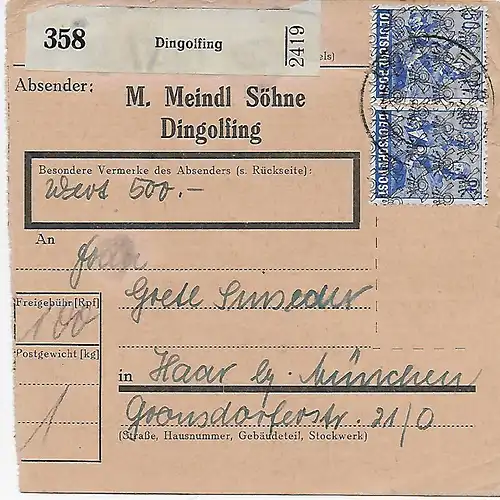 358 Dingolfing 2419
els)
Absender:
M. Meindl Söhne
Dingolfing
Besondere Vermerke des Absenders (s. Rückseite):
Wert 500.-
An
Frau
Grete
Freigebühr [Rpf]
100
Postgewicht [kg]
1
in Haar by. München
Gronsdorferstr. 21/0
(Straße, Hausnummer, Gebäudeteil, Stockwerk)
DEUTSCHE POST
DEUTSCHE POST